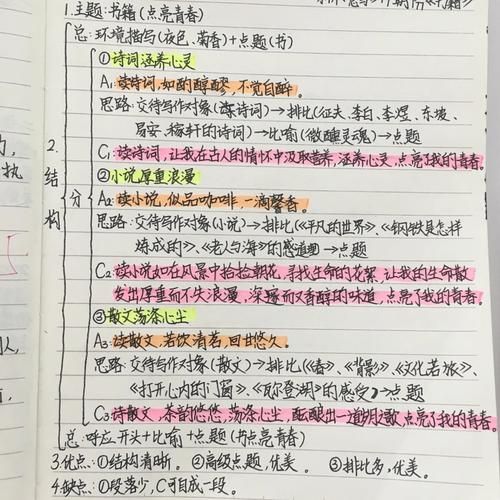 1.主题:书籍(点亮青春)
总:环境描写(夜色、菊香)+点题(书)
①诗词涵养心灵
A₁:读诗词,如酌醇醪,不觉自醉。
思路:交待写作对象(读诗词)→排比(征夫、李白、李煜、东坡、
易安、稼轩的诗词)→比喻(微醺灵魂)→点题
C₁:读诗词,让我在古人的情怀中汲取营养,涵养心灵,点亮了我的青春。
2.结构
分
②小说厚重浪漫
A₂:读小说,似品咖啡,一滴馨香。
思路:交待写作对象(小说)→排比(《平凡的世界》、《钢铁是怎样
炼成的》、《老人与海》的感道理→点题
C₂:读小说如在风景中拾捡朝花,寻找生命的花絮,让我的生命散
发出厚重而不失浪漫,深邃而又香醇的味道,点亮了我的青春。
③散文荡涤心尘
A₃:读散文,若饮清茗,回甘悠久。
思路:交待写作对象(散文)→排比(《春》、《背影》、《文化苦旅》、
《打开心内的门窗》、《瓦尔登湖》的感受)→点题
C₃:诗散文,茶韵悠悠,荡涤心尘,酝酿出一道,点亮了我的青春。
总:呼应开头+比喻+点题(书点亮青春)
3.优点:①结构清晰。②高级点题,优美。③排比多,优美。
4.缺点:①段落少,C可自成一段。